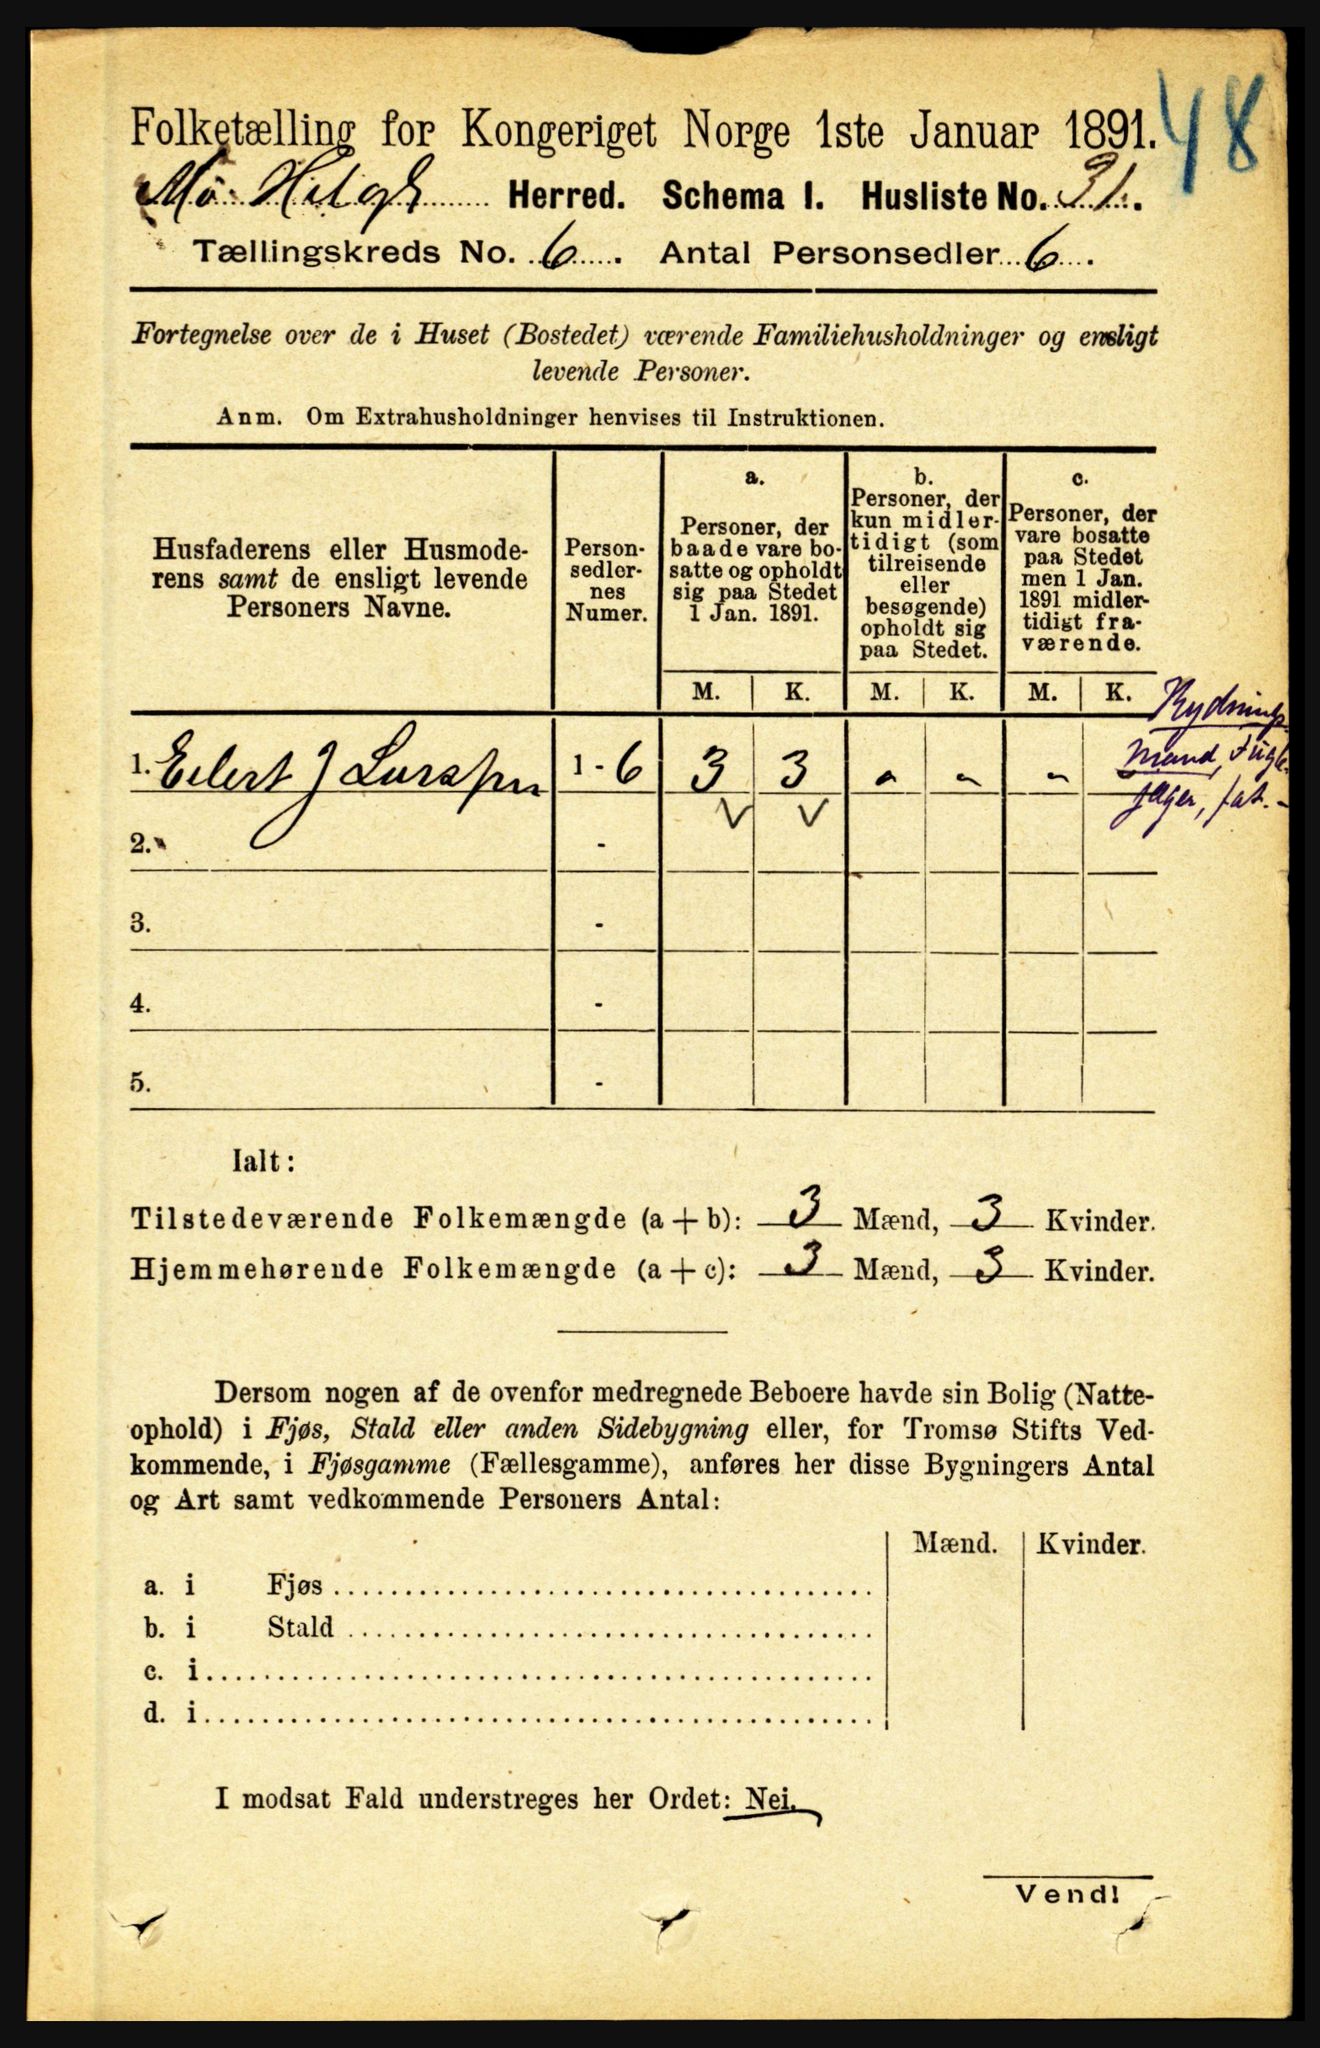 48
Folketælling for Kongeriget Norge 1ste Januar 1891.
Mo Herred. Schema I. Husliste No. 31.
Tællingskreds No. 6. Antal Personsedler 6.
Fortegnelse over de i Huset (Bostedet) værende Familiehusholdninger og ensligt
levende Personer.
Anm. Om Extrahusholdninger henvises til Instruktionen.
Husfaderens eller Husmode-
rens samt de ensligt levende
Personers Navne.
Person-
sedler-
nes
Numer.
a.
Personer, der
baade vare bo-
satte og opholdt
sig paa Stedet
1 Jan. 1891.
b.
Personer, der
kun midler-
tidigt (som
tilreisende
eller
besøgende)
opholdt sig
paa Stedet.
c.
Personer, der
vare bosatte
paa Stedet
men 1 Jan.
1891 midler-
tidigt fra-
værende.
M. K. M. K. M. K.
Rydnings
mand, Fugle-
jæger, fat.
1. Eilert J Larsen 1 - 6 3 3 " " "
2. -
3. -
4. -
5. -
Ialt:
Tilstedeværende Folkemængde (a + b): 3 Mænd, 3 Kvinder.
Hjemmehørende Folkemængde (a + c): 3 Mænd, 3 Kvinder.
Dersom nogen af de ovenfor medregnede Beboere havde sin Bolig (Natte-
ophold) i Fjøs, Stald eller anden Sidebygning eller, for Tromsø Stifts Ved-
kommende, i Fjøsgamme (Fællesgamme), anføres her disse Bygningers Antal
og Art samt vedkommende Personers Antal:
Mænd. Kvinder.
a. i Fjøs
b. i Stald
c. i
d. i
I modsat Fald understreges her Ordet: Nei.
Vend!